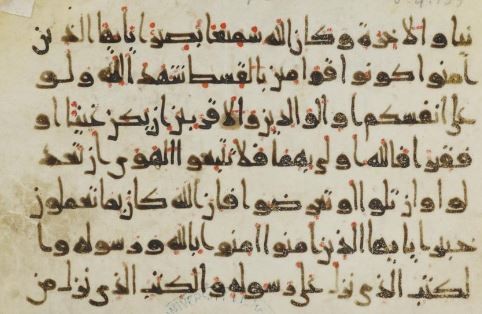 نيا والاخرة وكان الله سميعا بصيرا يايها الذين
امنوا كونوا قوامين بالقسط شهدا لله ولو
على انفسكم او الوالدين والاقربين ان يكن غنيا او
فقيرا فالله اولى بهما فلا تتبعوا الهوى ان تعد
لوا وان تلوا او تعرضوا فان الله كان بما تعملون
خبيرا يايها الذين امنوا امنوا بالله ورسوله وا
لكتب الذى نزل على رسوله والكتب الذى نزل من